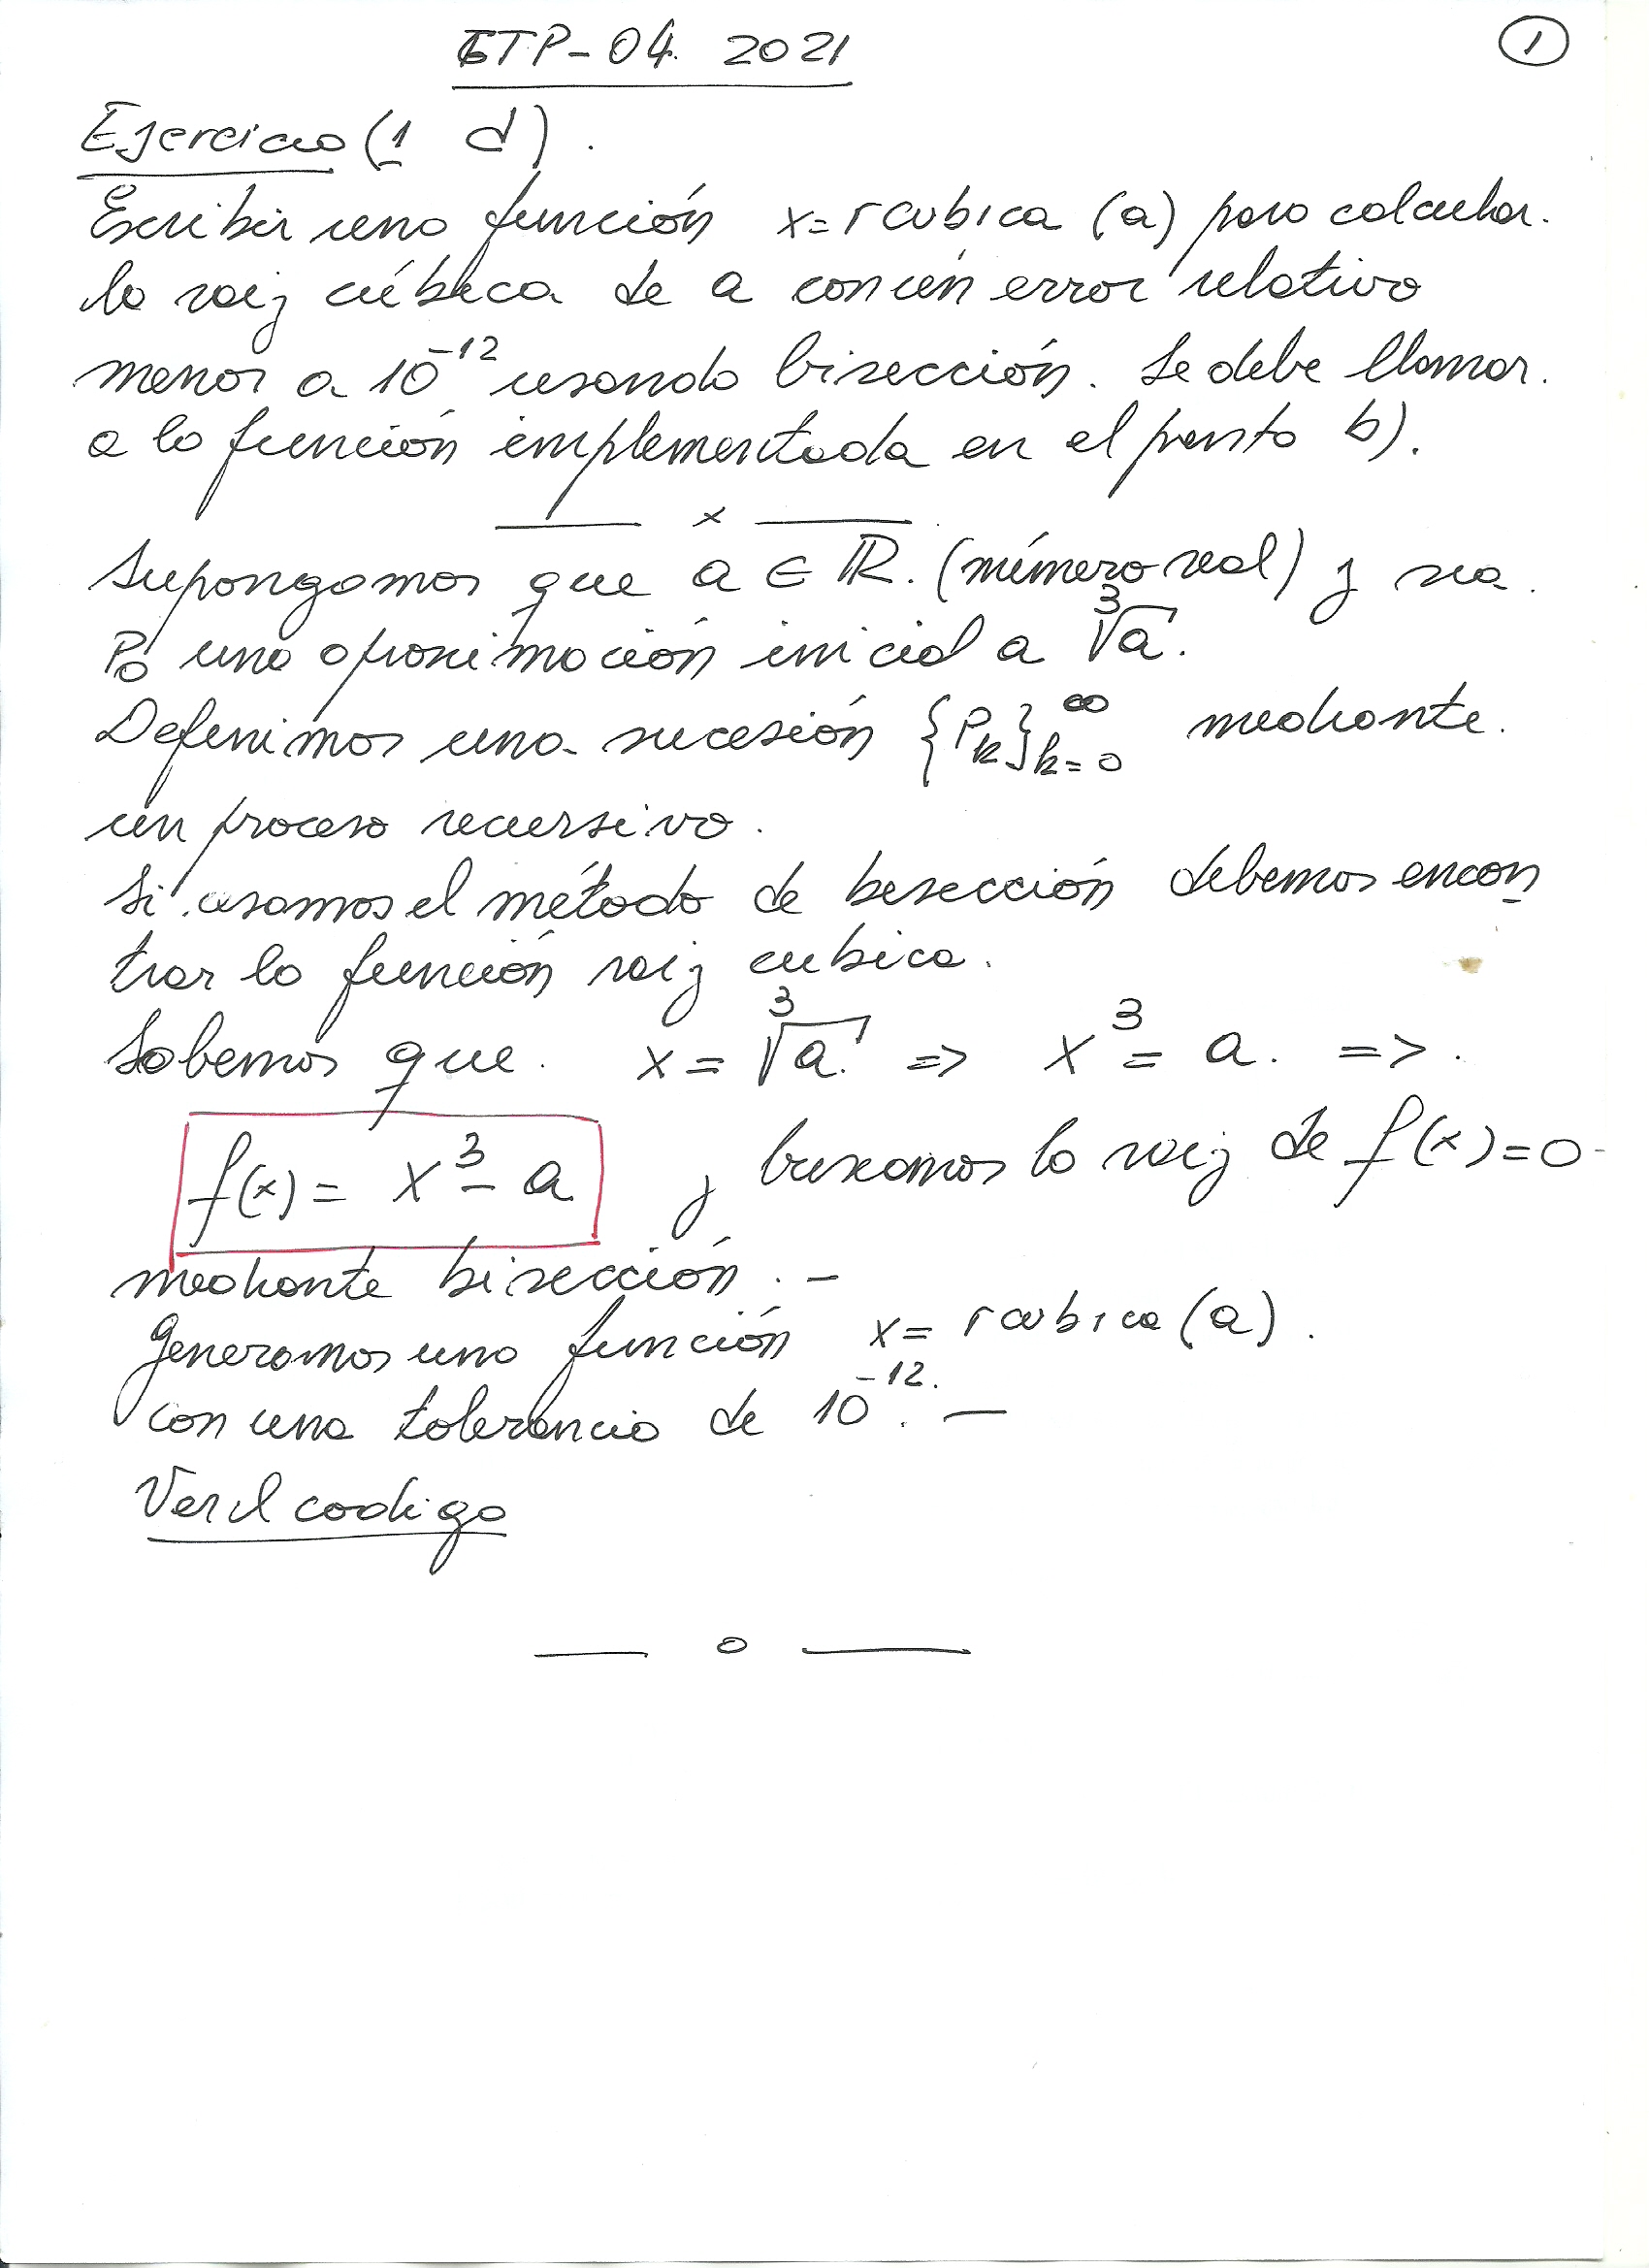 GTP-04. 2021
1
Ejercicio (1 d).
Escribir una función x=rcubica (a) para calcular.
la raiz cúbica de a con un error relativo
menor a 10^-12 usando bisección. Se debe llamar.
a la función implementada en el punto b).
x
Supongamos que a ∈ ℝ. (número real) y sea.
P₀ una aproximación inicial a ∛a.
Definimos una sucesión {P_k}_{k=0}^∞ mediante.
un proceso recursivo.
Si usamos el método de bisección debemos encon
trar la función raiz cubica.
Sabemos que. x = ∛a. => x³ = a. =>.
f(x) = x³ - a y buscamos la raiz de f(x)=0-
mediante bisección.-
Generamos una función x= rcubica (a).
con una tolerancia de 10^-12.-
Ver el codigo